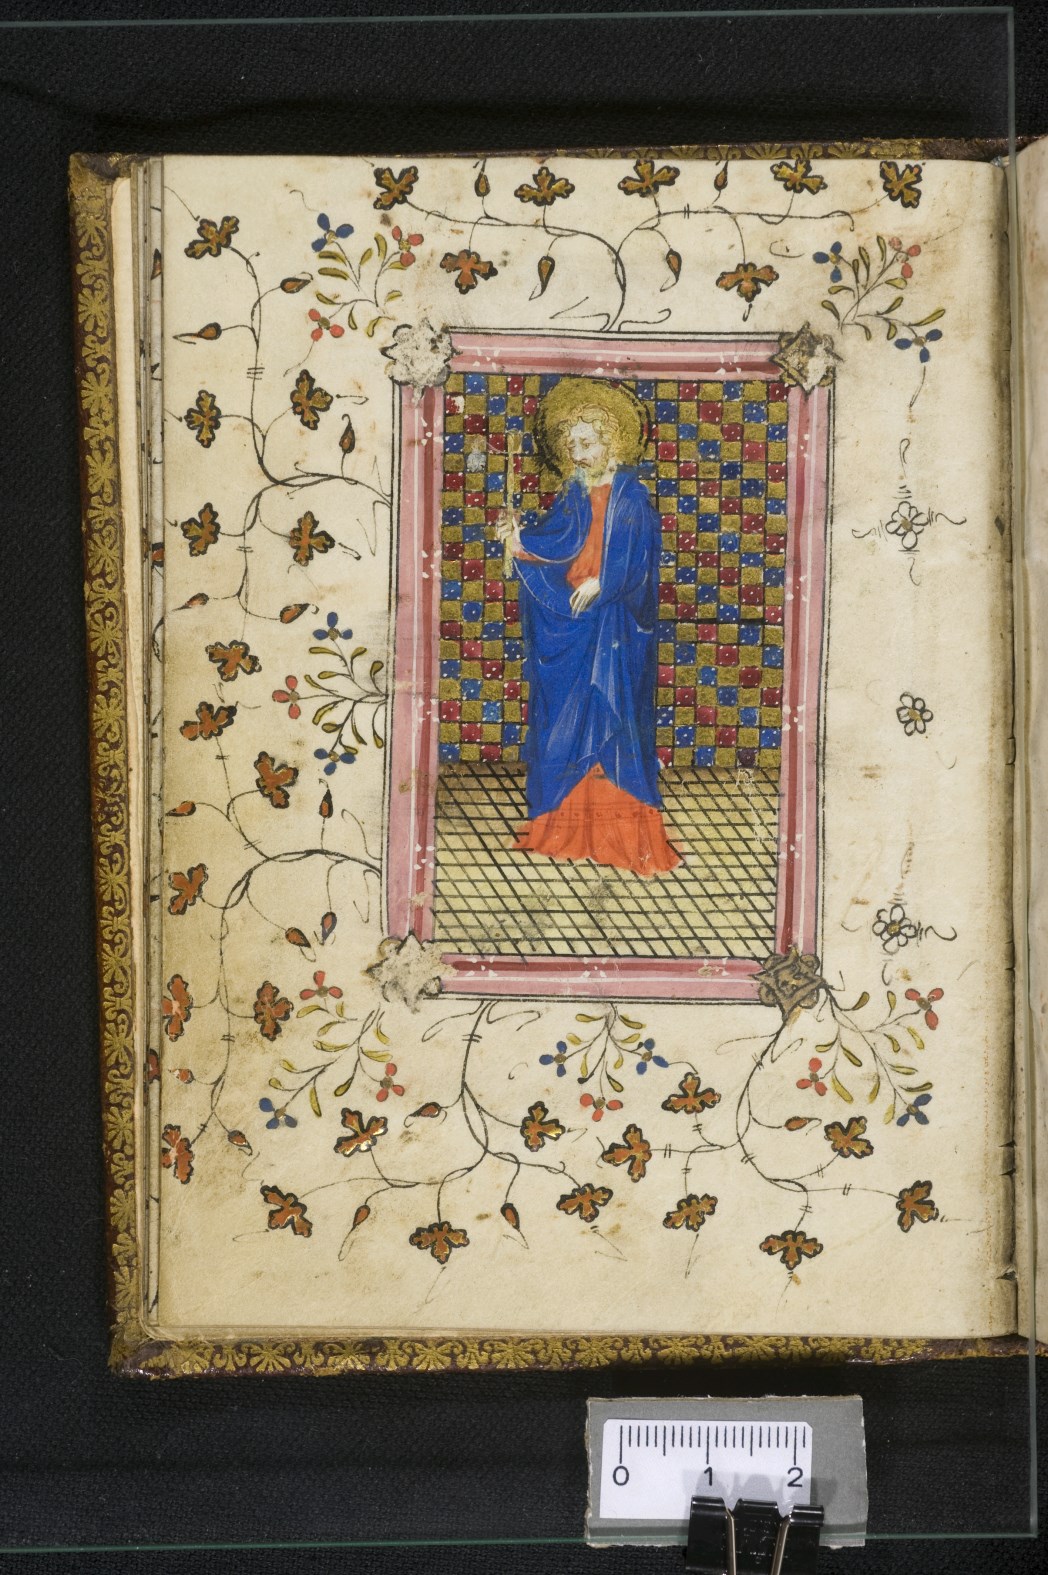 0 1 2